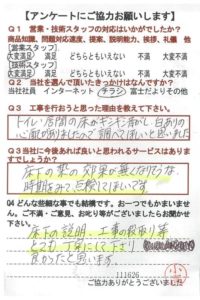 【アンケートにご協力お願いします】
Q1 営業・技術スタッフの対応はいかがでしたか?
商品知識、問題対応速度、提案、説明能力、挨拶、礼儀 他
【営業スタッフ】
大変満足 満足 どちらともいえない 不満 大変不満
【技術スタッフ】
大変満足 満足 どちらともいえない 不満 大変不満
Q2 当社を選んで頂いたきっかけはなんですか?
当社社員 インターネット チラシ 富士だよりその他
Q3 工事を行おうと思った理由を教えて下さい。
トイレ・居間の床がギシギシ鳴り、白ありの
心配がありましたので調べてほしいと思いました
Q3 当社に今後あれば良いと思われるサービスはありますでしょうか?
床下の薬の効果が無くなりそうな
時期をみて点検してほしいです。
Q4 どんな些細な事でも結構です。お一つでもかまいません。ご不満・ご意見、お叱り等がございましたらお聞かせ下さい。
床下の証明、工事の段取り等
とても丁寧にして下さり
良かったと思います。
111626
小
ご協力ありがとうございました